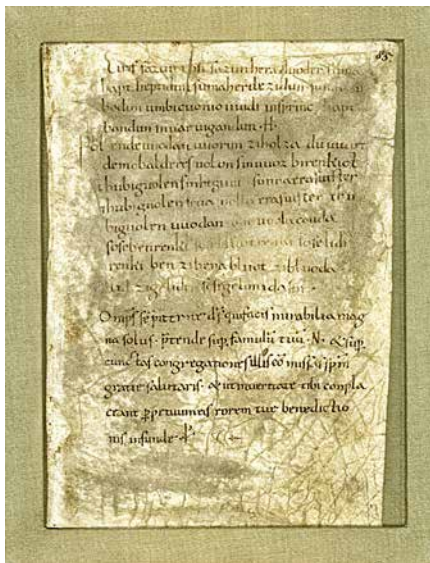 85.
Eiris sazun idisi sazun hera duoder suma
hapt heptidun sumaherilezidun suma
bodun umbicuoniouuidi insprinc hapt
bandun inuar uigandun· H·
Phol endeuuodan uuorun ziholza du uuart
demobalderes uolon sinuuoz birenkict
thubiguolen sinhtgunt sunnaerasuister
thubiguolen friia uolla erasuister thu
biguolen uuodan sohe uuolaconda
sosebenrenki sosebluotrenki soselidi
renki ben zibena bluot zibluoda
lid zigeliden sosegelimidasin·
Omps sēpiterne dš quifacis mirabilia mag
na solus· p̄tende sup̄ famulū tuū ·N· & sup̄
cunctas congregationes illis cōmissas sp̄m
gratie salutaris· & ut inueritate tibi conpla
ceant p̄petuum eis rorem tue benedictio
nis infunde·